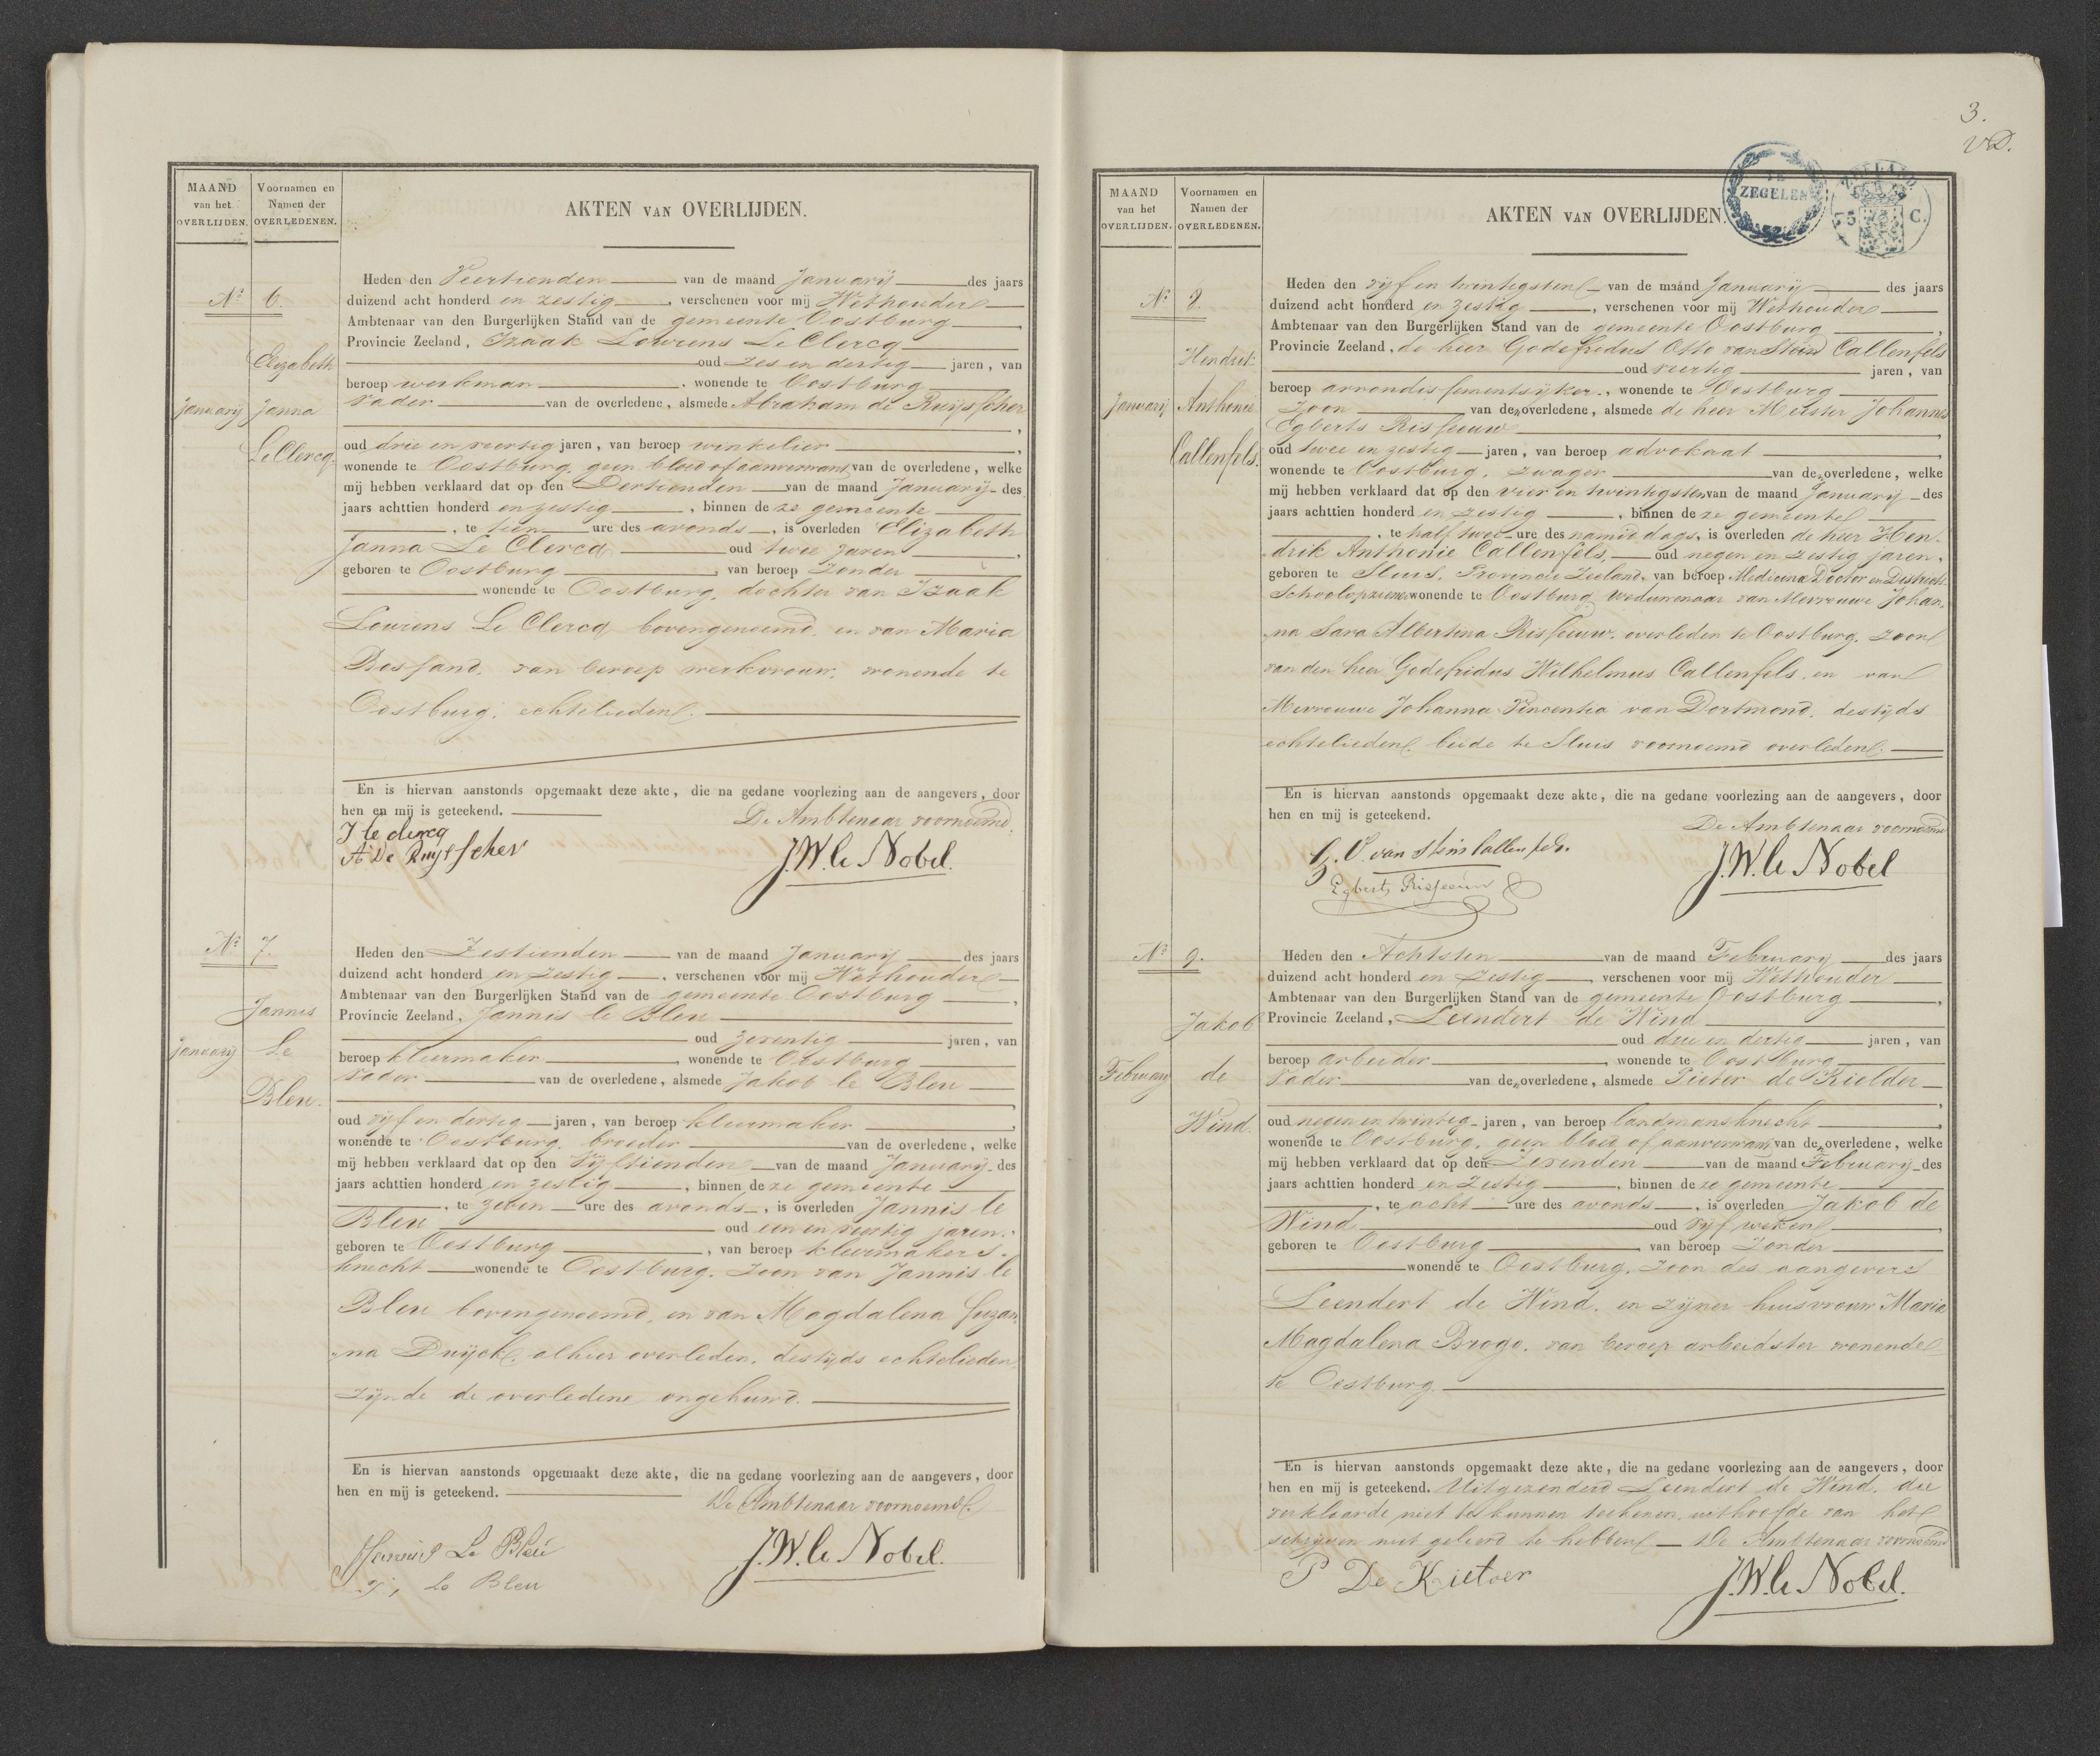 MAAND
van het
OVERLIJDEN.
Voornamen en
Namen der
OVERLEDENEN.
AKTEN VAN OVERLIJDEN.
No 6.
Elizabeth
Janna
Le Clercq
January
Heden den Veertienden van de maand January des jaars
duizend acht honderd en zestig, verschenen voor mij Wethouder
Ambtenaar van den Burgerlijken Stand van de gemeente Oostburg,
Provincie Zeeland, Izaak Lourens Le Clercq
oud zes en dertig jaren, van
beroep werkman, wonende te Oostburg
vader van de overledene, alsmede Abraham de Ruijsscher
,
oud drie en veertig jaren, van beroep winkelier,
wonende te Oostburg, geen bloed of aanverwant van de overledene, welke
mij hebben verklaard dat op den Dertienden van de maand January des
jaars achttien honderd en zestig, binnen deze gemeente
, te tien ure des avonds, is overleden Elizabeth
Janna Le Clercq oud twee jaren,
geboren te Oostburg, van beroep zonder
wonende te Oostburg, dochter van Izaak
Lourens Le Clercq bovengenoemd, en van Maria
Bossand, van beroep werkvrouw, wonende te
Oostburg, echtelieden.
En is hiervan aanstonds opgemaakt deze akte, die na gedane voorlezing aan de aangevers, door
hen en mij is geteekend.
De Ambtenaar voornoemd.
J le clercq
A De Ruijsscher
J.W. le Nobel.
No 7.
Jannis
Le
Bleu.
January
Heden den Zestienden van de maand January des jaars
duizend acht honderd en zestig, verschenen voor mij Wethouder
Ambtenaar van den Burgerlijken Stand van de gemeente Oostburg,
Provincie Zeeland, Jannis le Bleu
oud zeventig jaren, van
beroep kleermaker, wonende te Oostburg
vader van de overledene, alsmede Jakob le Bleu
,
oud vijf en dertig jaren, van beroep kleermaker,
wonende te Oostburg, broeder van de overledene, welke
mij hebben verklaard dat op den Vijftienden van de maand January des
jaars achttien honderd en zestig, binnen deze gemeente
, te zeven ure des avonds, is overleden Jannis le
Bleu oud een en veertig jaren,
geboren te Oostburg, van beroep kleermakers-
knecht wonende te Oostburg, zoon van Jannis le
Bleu bovengenoemd, en van Magdalena Suzan-
na Duijck, alhier overleden, destijds echtelieden,
zijnde de overledene ongehuwd.
En is hiervan aanstonds opgemaakt deze akte, die na gedane voorlezing aan de aangevers, door
hen en mij is geteekend.
De Ambtenaar voornoemd.
Jannis Le Bleu
Le Bleu
J.W. le Nobel.
3.
VD.
MAAND
van het
OVERLIJDEN.
Voornamen en
Namen der
OVERLEDENEN.
AKTEN VAN OVERLIJDEN.
TE
ZEGELEN
ZEELAND
75 C.
No 8.
Hendrik
Anthonie
Callenfels.
January
Heden den vijf en twintigsten van de maand January des jaars
duizend acht honderd en zestig, verschenen voor mij Wethouder
Ambtenaar van den Burgerlijken Stand van de gemeente Oostburg,
Provincie Zeeland, de heer Godefridus Otto van Stein Callenfels
oud veertig jaren, van
beroep arrondissementsijker, wonende te Oostburg
zoon van den overledene, alsmede de heer Meester Johannes
Egberts Risseeuw,
oud twee en zestig jaren, van beroep advokaat,
wonende te Oostburg, zwager van den overledene, welke
mij hebben verklaard dat op den vier en twintigsten van de maand January des
jaars achttien honderd en zestig, binnen deze gemeente
, te half twee ure des namiddags, is overleden de heer Hen-
drik Anthonie Callenfels, oud negen en zestig jaren,
geboren te Sluis, Provincie Zeeland, van beroep Medicina Doctor en District
Schoolopziener wonende te Oostburg, weduwenaar van Mevrouwe Johan-
na Sara Albertina Risseeuw, overleden te Oostburg, zoon
van den heer Godefridus Wilhelmus Callenfels, en van
Mevrouwe Johanna Vincentia van Dortmond, destijds
echtelieden, beide te Sluis voornoemd overleden.
En is hiervan aanstonds opgemaakt deze akte, die na gedane voorlezing aan de aangevers, door
hen en mij is geteekend.
De Ambtenaar voornoemd
G. O. van Stein Callenfels.
Egberts Risseeuw
J.W. le Nobel
No 9.
Jakob
de
Wind.
February
Heden den Achtsten van de maand February des jaars
duizend acht honderd en zestig, verschenen voor mij Wethouder
Ambtenaar van den Burgerlijken Stand van de gemeente Oostburg,
Provincie Zeeland, Leendert de Wind
oud drie en dertig jaren, van
beroep arbeider, wonende te Oostburg
vader van den overledene, alsmede Pieter de Kielder
,
oud negen en twintig jaren, van beroep landmansknecht,
wonende te Oostburg, geen bloed of aanverwant van den overledene, welke
mij hebben verklaard dat op den Zevenden van de maand February des
jaars achttien honderd en zestig, binnen deze gemeente
, te acht ure des avonds, is overleden Jakob de
Wind oud vijf weken,
geboren te Oostburg, van beroep zonder
wonende te Oostburg, zoon des aangevers
Leendert de Wind, en zijner huisvrouw Maria
Magdalena Brogo, van beroep arbeidster wonende
te Oostburg.
En is hiervan aanstonds opgemaakt deze akte, die na gedane voorlezing aan de aangevers, door
hen en mij is geteekend. Uitgezonderd Leendert de Wind, die
verklaarde niet te kunnen teekenen, uithoofde van het
schrijven niet geleerd te hebben. De Ambtenaar voornoemd
P De Kielder
J.W. le Nobel.